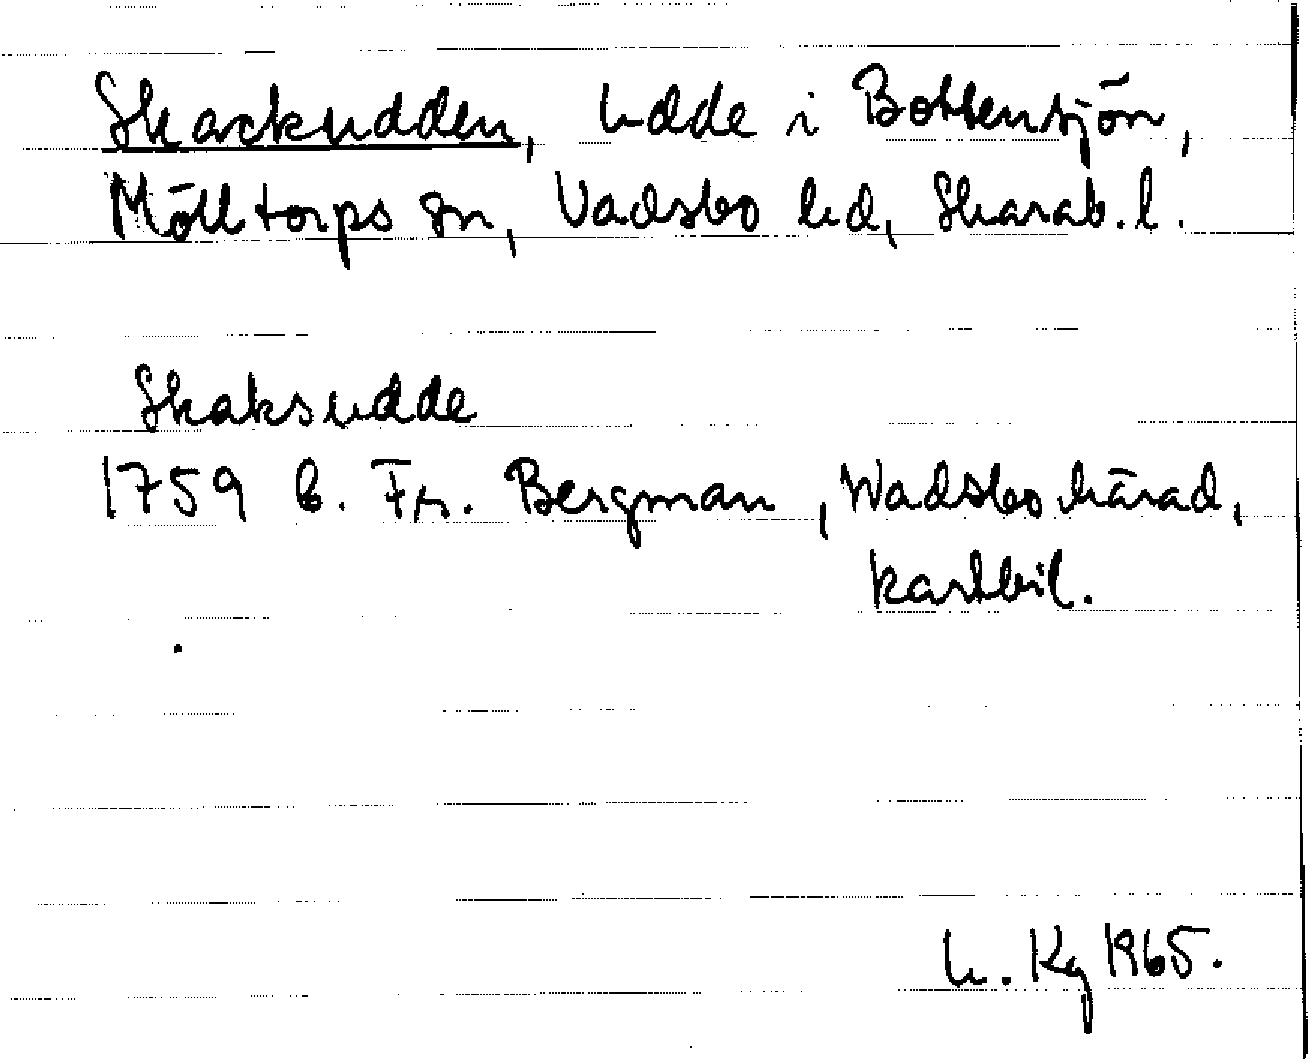 Skackudden, udde i Bottensjön,
Mölltorps sn, Vadsbo hd, Skarab. l.
Skaksudde
1759 B. Fr. Bergman, Wadsbo härad,
kartbil.
L. Kg 1965.